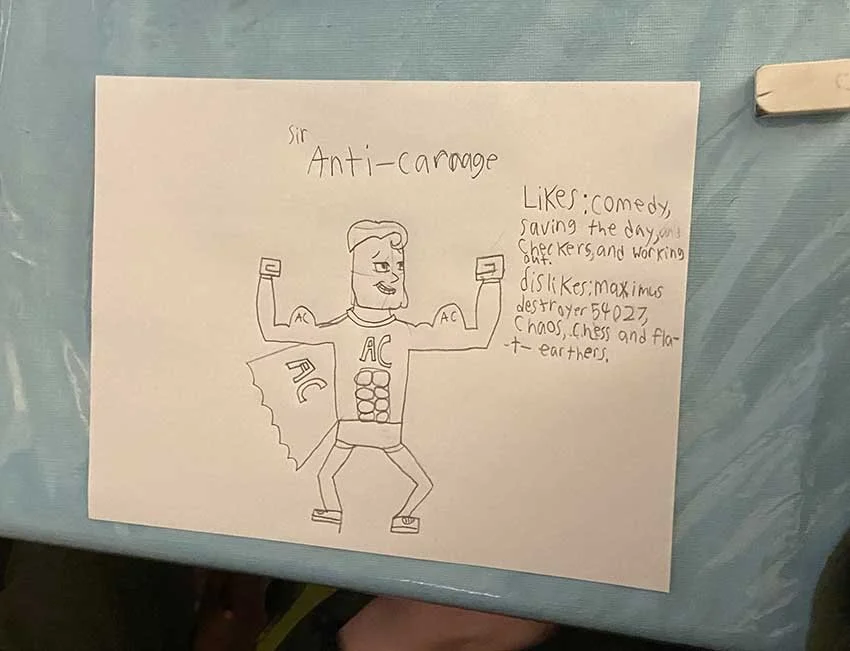 Sir
Anti-carnage
Likes: comedy,
saving the day, and
Checkers, and working
out.
dislikes: maximus
destroyer 54027,
Chaos, Chess and fla-
-t- earthers.
AC
AC
AC
AC